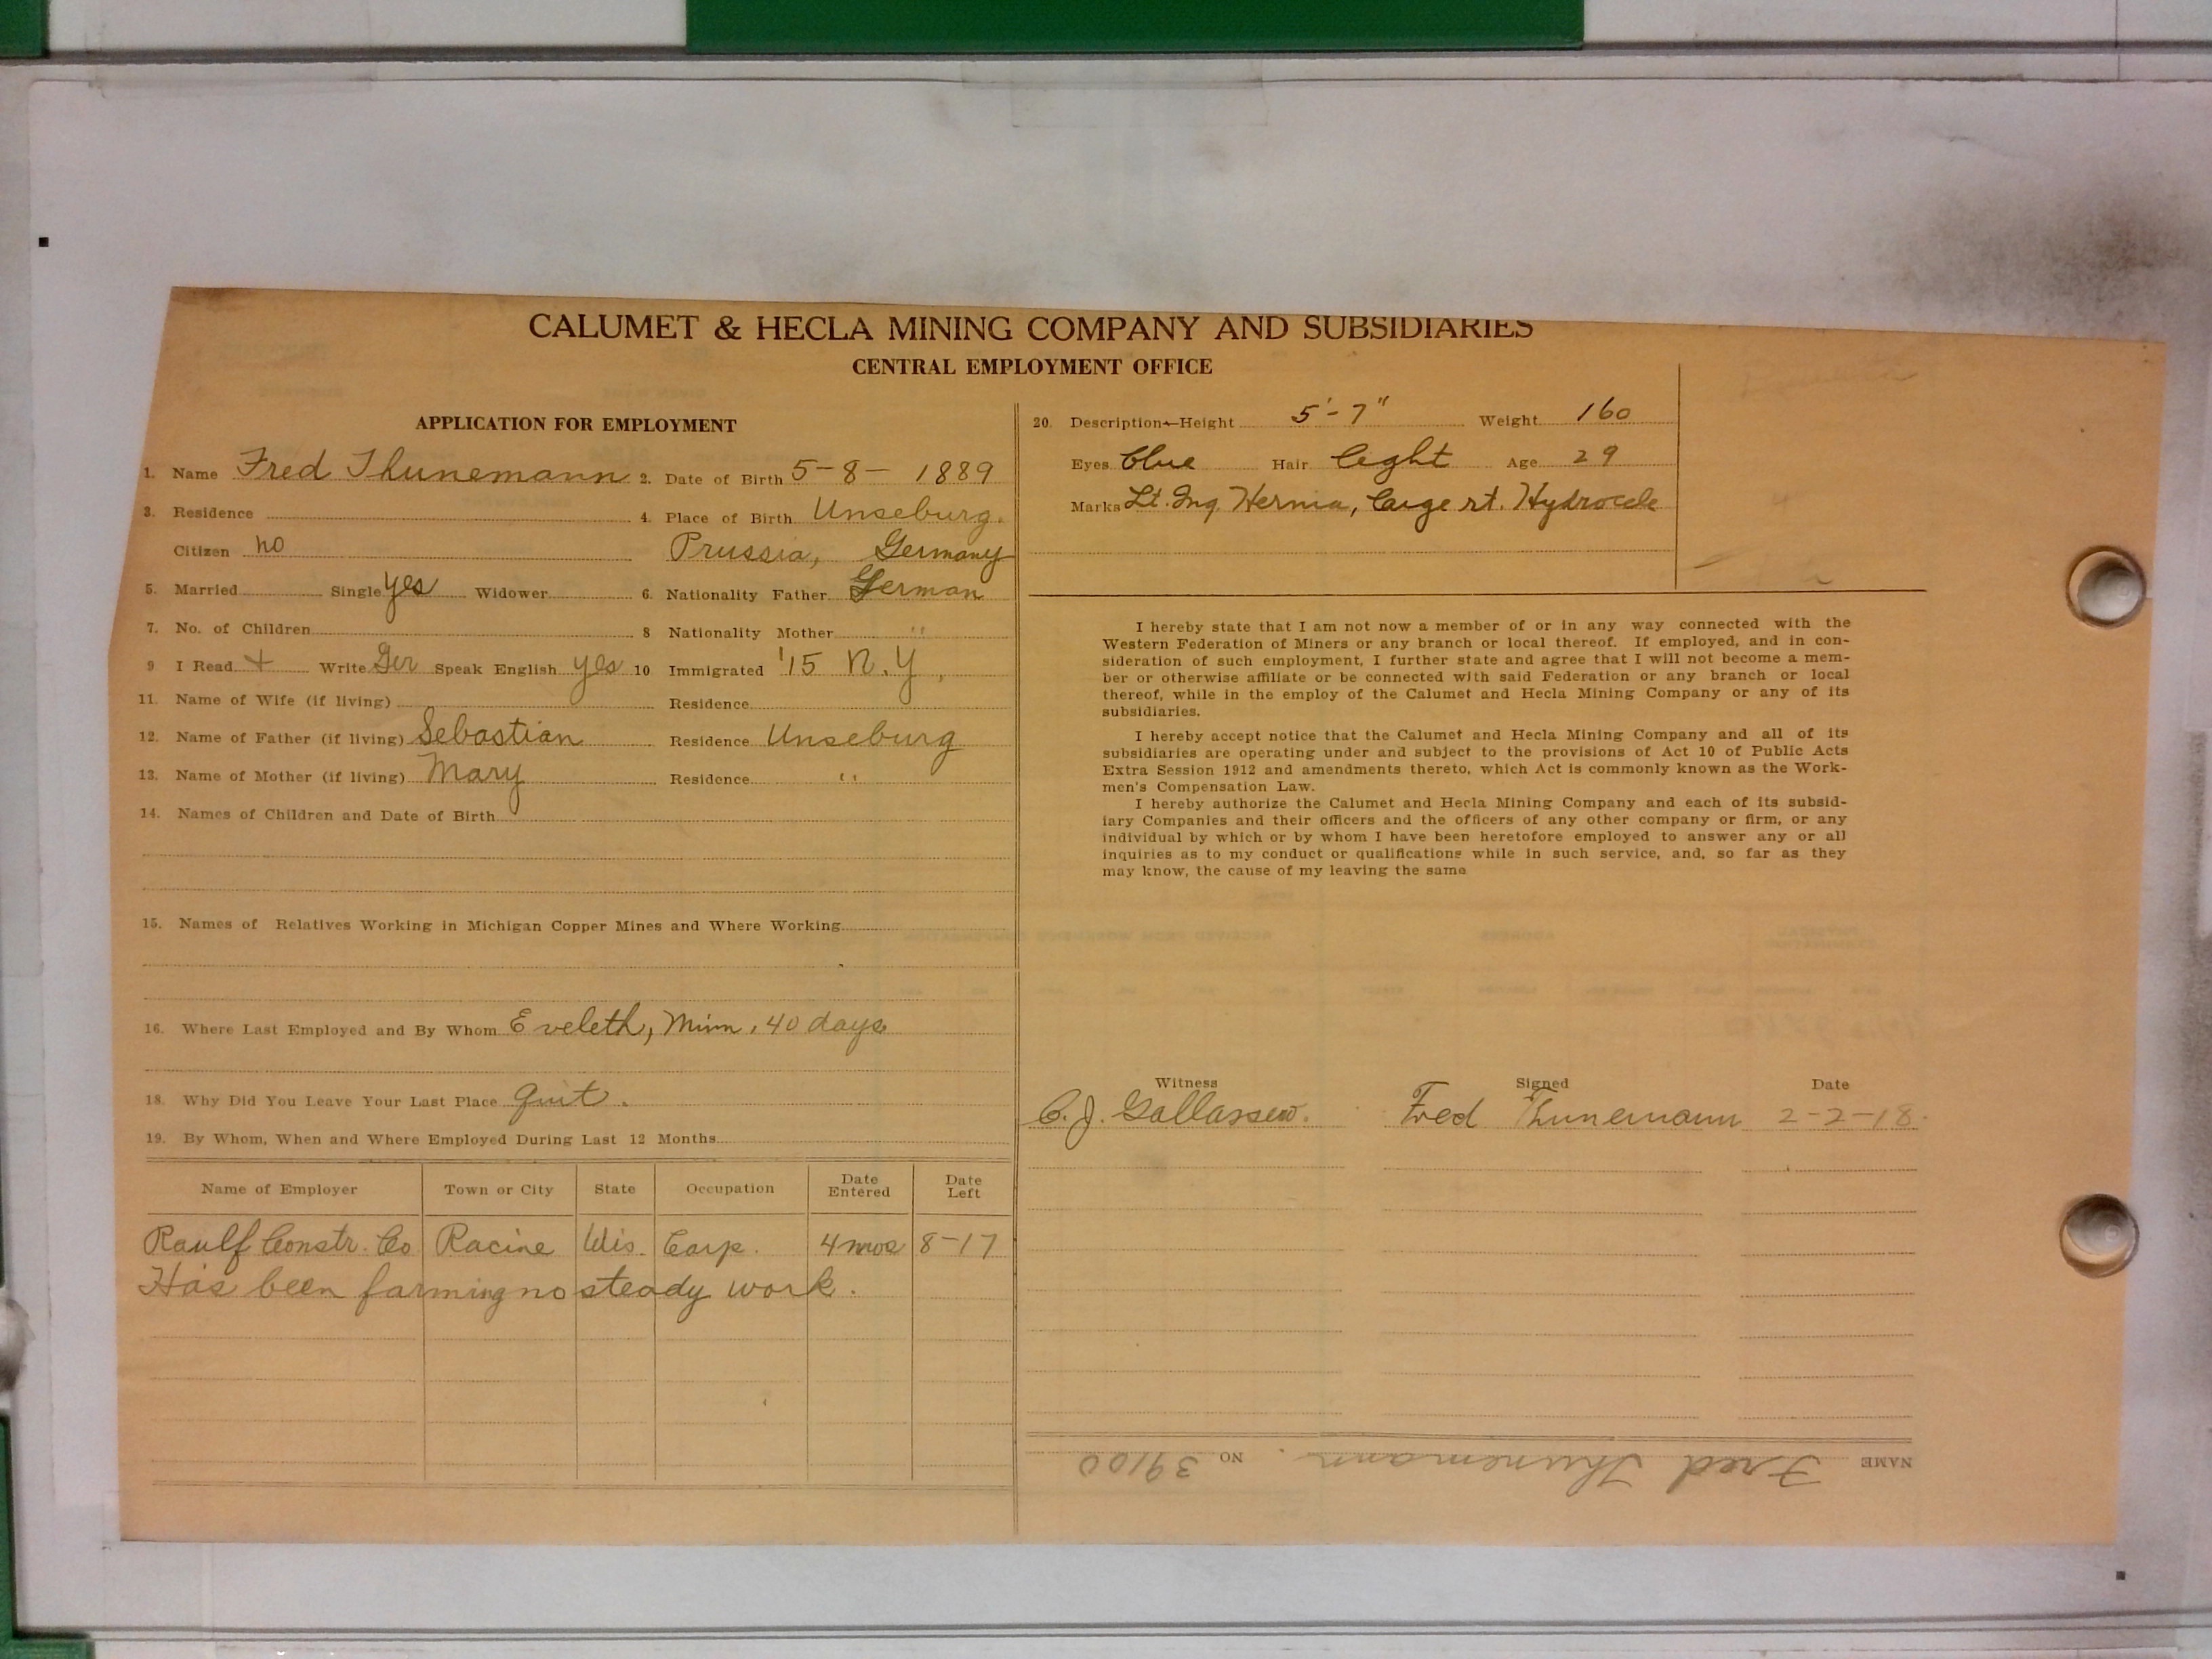 CALUMET & HECLA MINING COMPANY AND SUBSIDIARIES
CENTRAL EMPLOYMENT OFFICE
APPLICATION FOR EMPLOYMENT
1. Name Fred Thunemann 2. Date of Birth 5-8-1889
3. Residence 4. Place of Birth Unseburg.
Citizen no Prussia, Germany
5. Married Single yes Widower 6. Nationality Father German
7. No. of Children 8 Nationality Mother "
9 I Read + Write Ger Speak English yes 10 Immigrated '15 N.Y.
11. Name of Wife (if living) Residence
12. Name of Father (if living) Sebastian Residence Unseburg
13. Name of Mother (if living) Mary Residence "
14. Names of Children and Date of Birth
15. Names of Relatives Working in Michigan Copper Mines and Where Working
16. Where Last Employed and By Whom Eveleth, Minn, 40 days
18. Why Did You Leave Your Last Place quit.
19. By Whom, When and Where Employed During Last 12 Months
Name of Employer Town or City State Occupation Date Entered Date Left
Raulf Constr. Co Racine Wis. Carp. 4 mos 8-17
Has been farming no steady work.
20. Description—Height 5'-7" Weight 160
Eyes blue Hair light Age 29
Marks Lt. Ing. Hernia, large rt. Hydrocele
I hereby state that I am not now a member of or in any way connected with the
Western Federation of Miners or any branch or local thereof. If employed, and in con-
sideration of such employment, I further state and agree that I will not become a mem-
ber or otherwise affiliate or be connected with said Federation or any branch or local
thereof, while in the employ of the Calumet and Hecla Mining Company or any of its
subsidiaries.
I hereby accept notice that the Calumet and Hecla Mining Company and all of its
subsidiaries are operating under and subject to the provisions of Act 10 of Public Acts
Extra Session 1912 and amendments thereto, which Act is commonly known as the Work-
men's Compensation Law.
I hereby authorize the Calumet and Hecla Mining Company and each of its subsid-
iary Companies and their officers and the officers of any other company or firm, or any
individual by which or by whom I have been heretofore employed to answer any or all
inquiries as to my conduct or qualifications while in such service, and, so far as they
may know, the cause of my leaving the same
Witness Signed Date
C. J. Fred Thunemann 2-2-18.
NAME Fred Thunemann. NO 39100